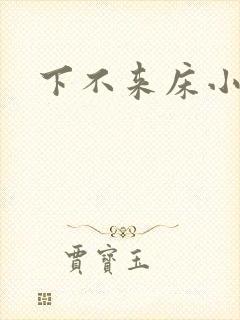 下不来床小
賈寶玉